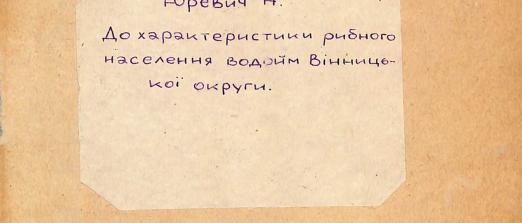 Юревич А.
До характеристики рибного
населення водойм Вінниць-
кої округи.